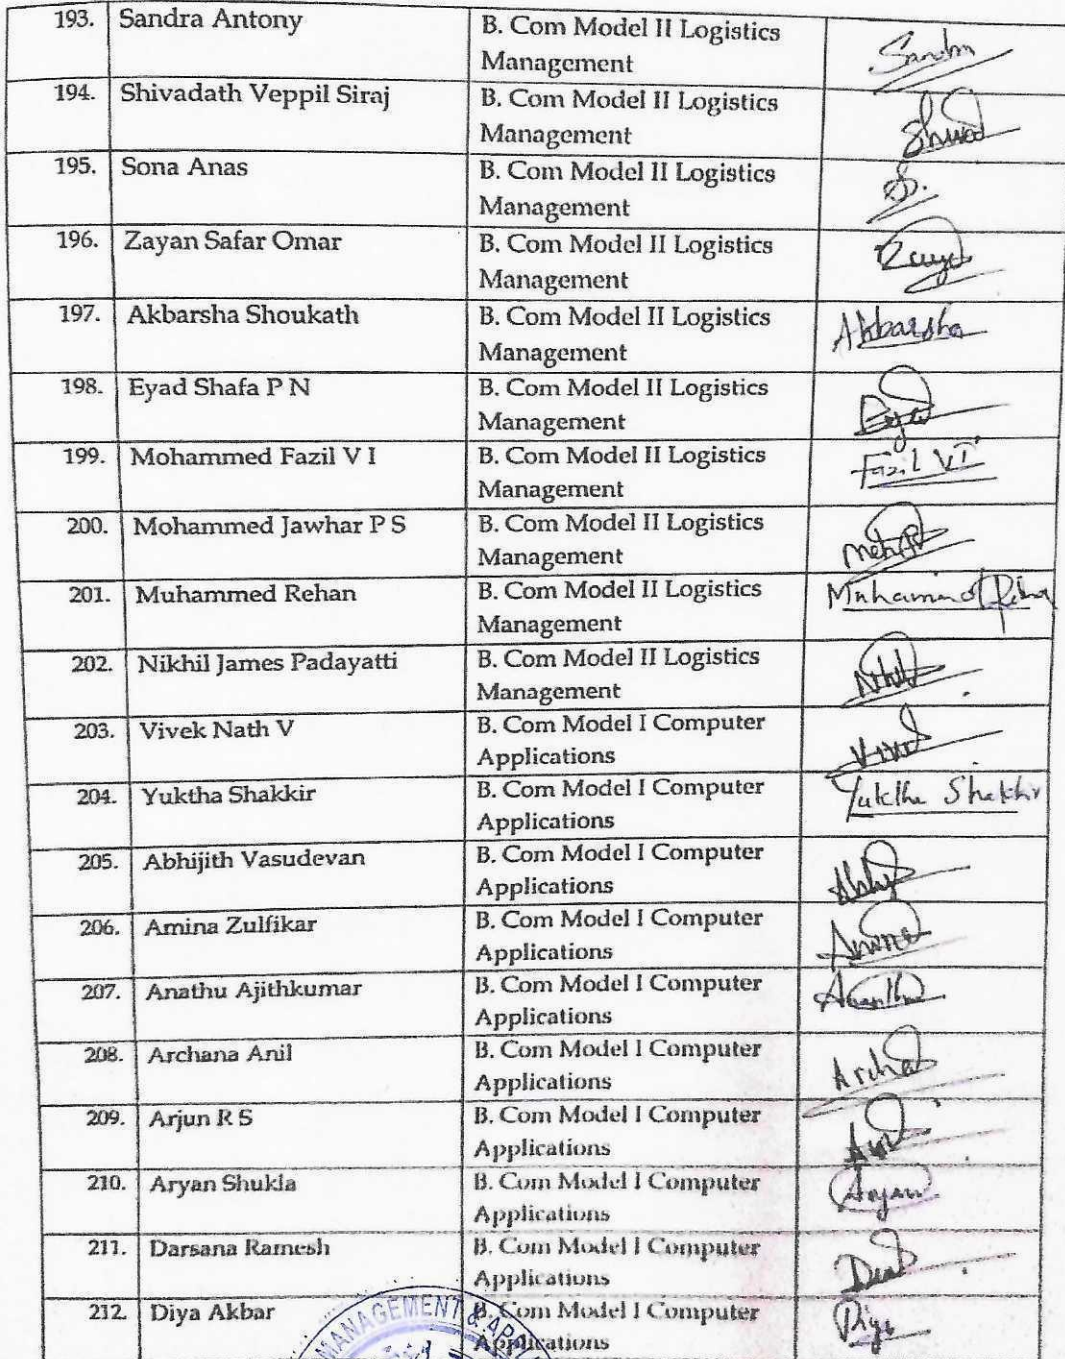 193. Sandra Antony B. Com Model II Logistics Sandra
Management
194. Shivadath Veppil Siraj B. Com Model II Logistics
Management
195. Sona Anas B. Com Model II Logistics S.
Management
196. Zayan Safar Omar B. Com Model II Logistics
Management
197. Akbarsha Shoukath B. Com Model II Logistics Akbarsha
Management
198. Eyad Shafa P N B. Com Model II Logistics
Management
199. Mohammed Fazil V I B. Com Model II Logistics Fazil VI
Management
200. Mohammed Jawhar P S B. Com Model II Logistics
Management
201. Muhammed Rehan B. Com Model II Logistics
Management
202. Nikhil James Padayatti B. Com Model II Logistics
Management
203. Vivek Nath V B. Com Model I Computer
Applications
204. Yuktha Shakkir B. Com Model I Computer Yuktha Shakkir
Applications
205. Abhijith Vasudevan B. Com Model I Computer
Applications
206. Amina Zulfikar B. Com Model I Computer
Applications
207. Anathu Ajithkumar B. Com Model I Computer
Applications
208. Archana Anil B. Com Model I Computer
Applications
209. Arjun R S B. Com Model I Computer
Applications
210. Aryan Shukla B. Com Model I Computer Aryan
Applications
211. Darsana Ramesh B. Com Model I Computer
Applications
212. Diya Akbar B. Com Model I Computer Diya
Applications
MANAGEMENT &